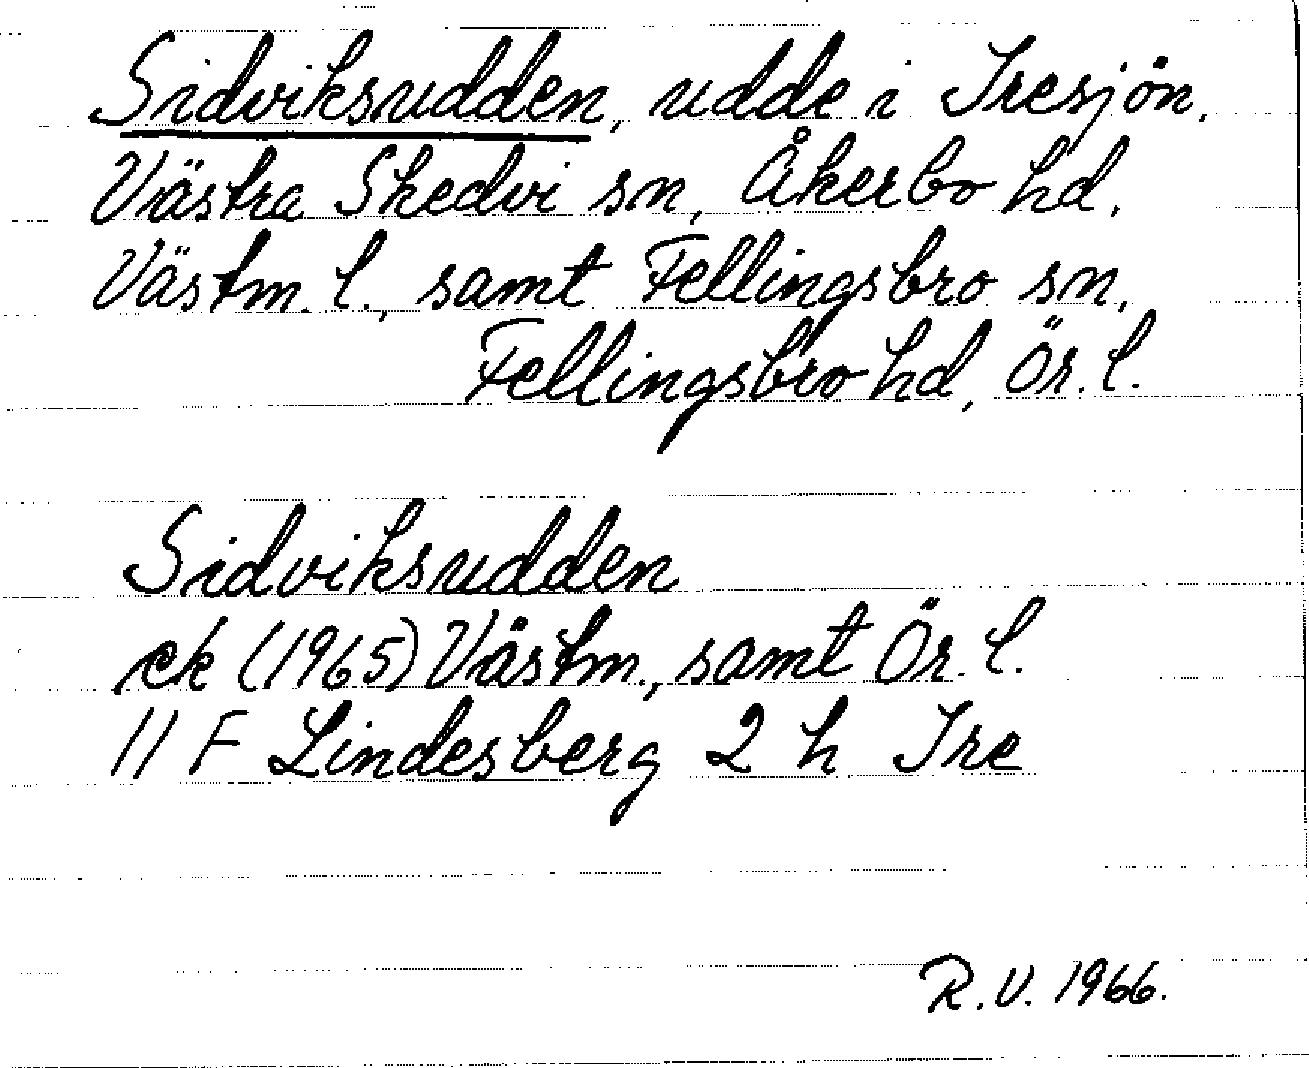 Sidviksudden, udde i Iresjön,
Västra Skedvi sn, Åkerbo hd,
Västm. l., samt Fellingsbro sn,
Fellingsbro hd, Ör. l.
Sidviksudden
ek (1965) Västm., samt Ör. l.
11 F Lindesberg 2 h Ire
R.V. 1966.